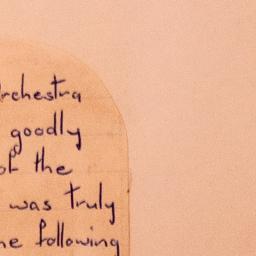 rchestra
goodly
of the
was truly
he following